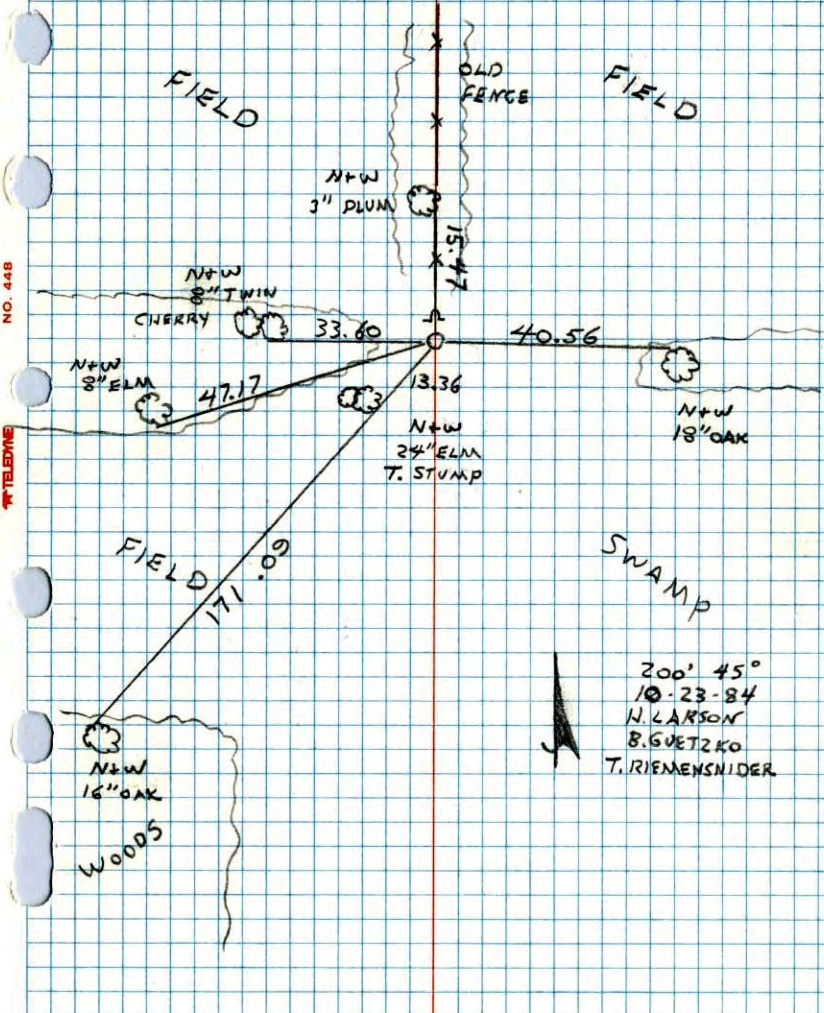 OLD
FENCE
FIELD
FIELD
N+W
3" PLUM
15.47
NO. 448
N+W
8" TWIN
CHERRY
33.60
40.56
N+W
8" ELM
47.17
13.36
N+W
24" ELM
T. STUMP
N+W
18" OAK
TELEDYNE
FIELD
171.09
SWAMP
200' 45°
10-23-84
N. LARSON
B. GUETZKO
T. RIEMENSNIDER
N+W
16" OAK
WOODS